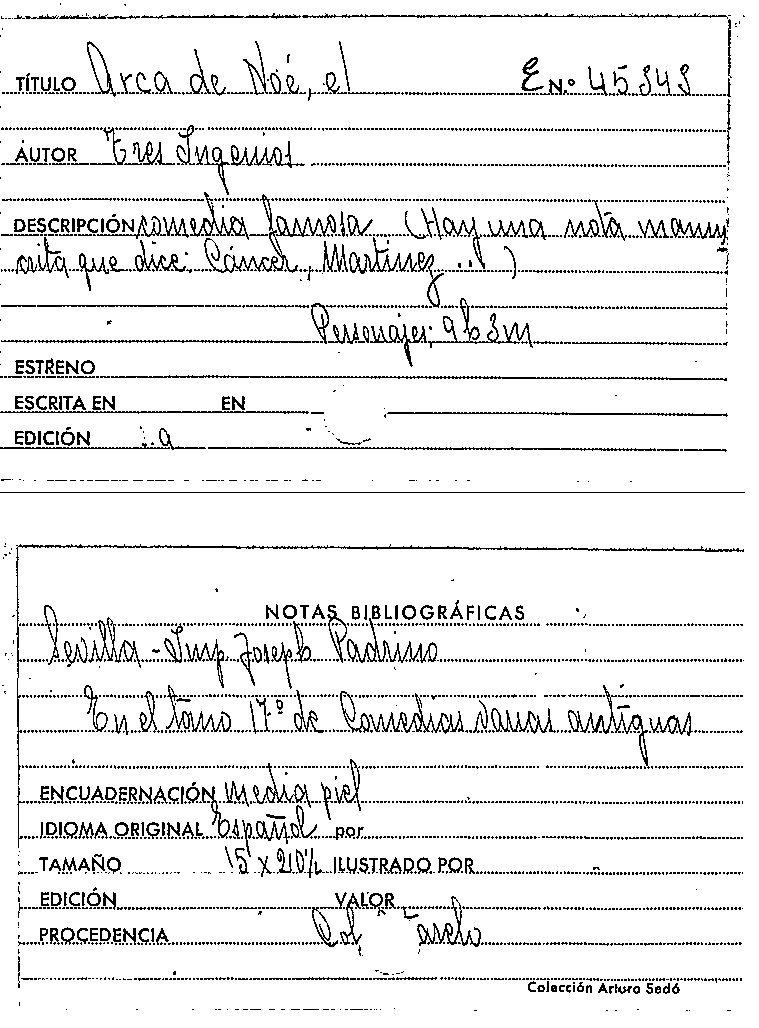 TÍTULO Arca de Noé, el EN.º 45343
AUTOR Tres Ingenios
DESCRIPCIÓN comedia famosa (Hay una nota manus
crita que dice: Cáncer, Martinez ...)
Personajes: 9h 3m
ESTRENO
ESCRITA EN EN
EDICIÓN
NOTAS BIBLIOGRÁFICAS
Sevilla - Imp Joseph Padrino
En el tomo 17º de Comedias varias antiguas
ENCUADERNACIÓN media piel
IDIOMA ORIGINAL Español por
TAMAÑO 15 x 210% ILUSTRADO POR
EDICIÓN VALOR
PROCEDENCIA Col,
Colección Arturo Sedó